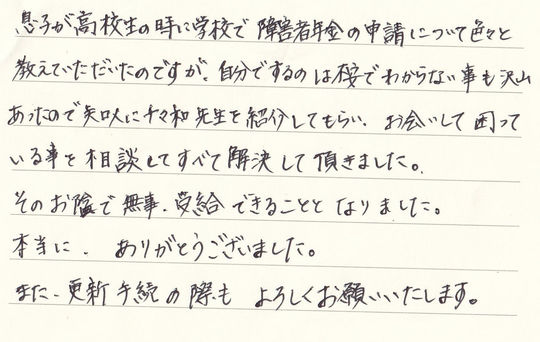 息子が高校生の時に学校で障害者年金の申請について色々と
教えていただいたのですが、自分でするのは大変でわからない事も沢山
あったので知人に千々和先生を紹介してもらい、お会いして困って
いる事を相談してすべて解決して頂きました。
そのお陰で無事、受給できることとなりました。
本当に、ありがとうございました。
また、更新手続の際も よろしくお願いいたします。